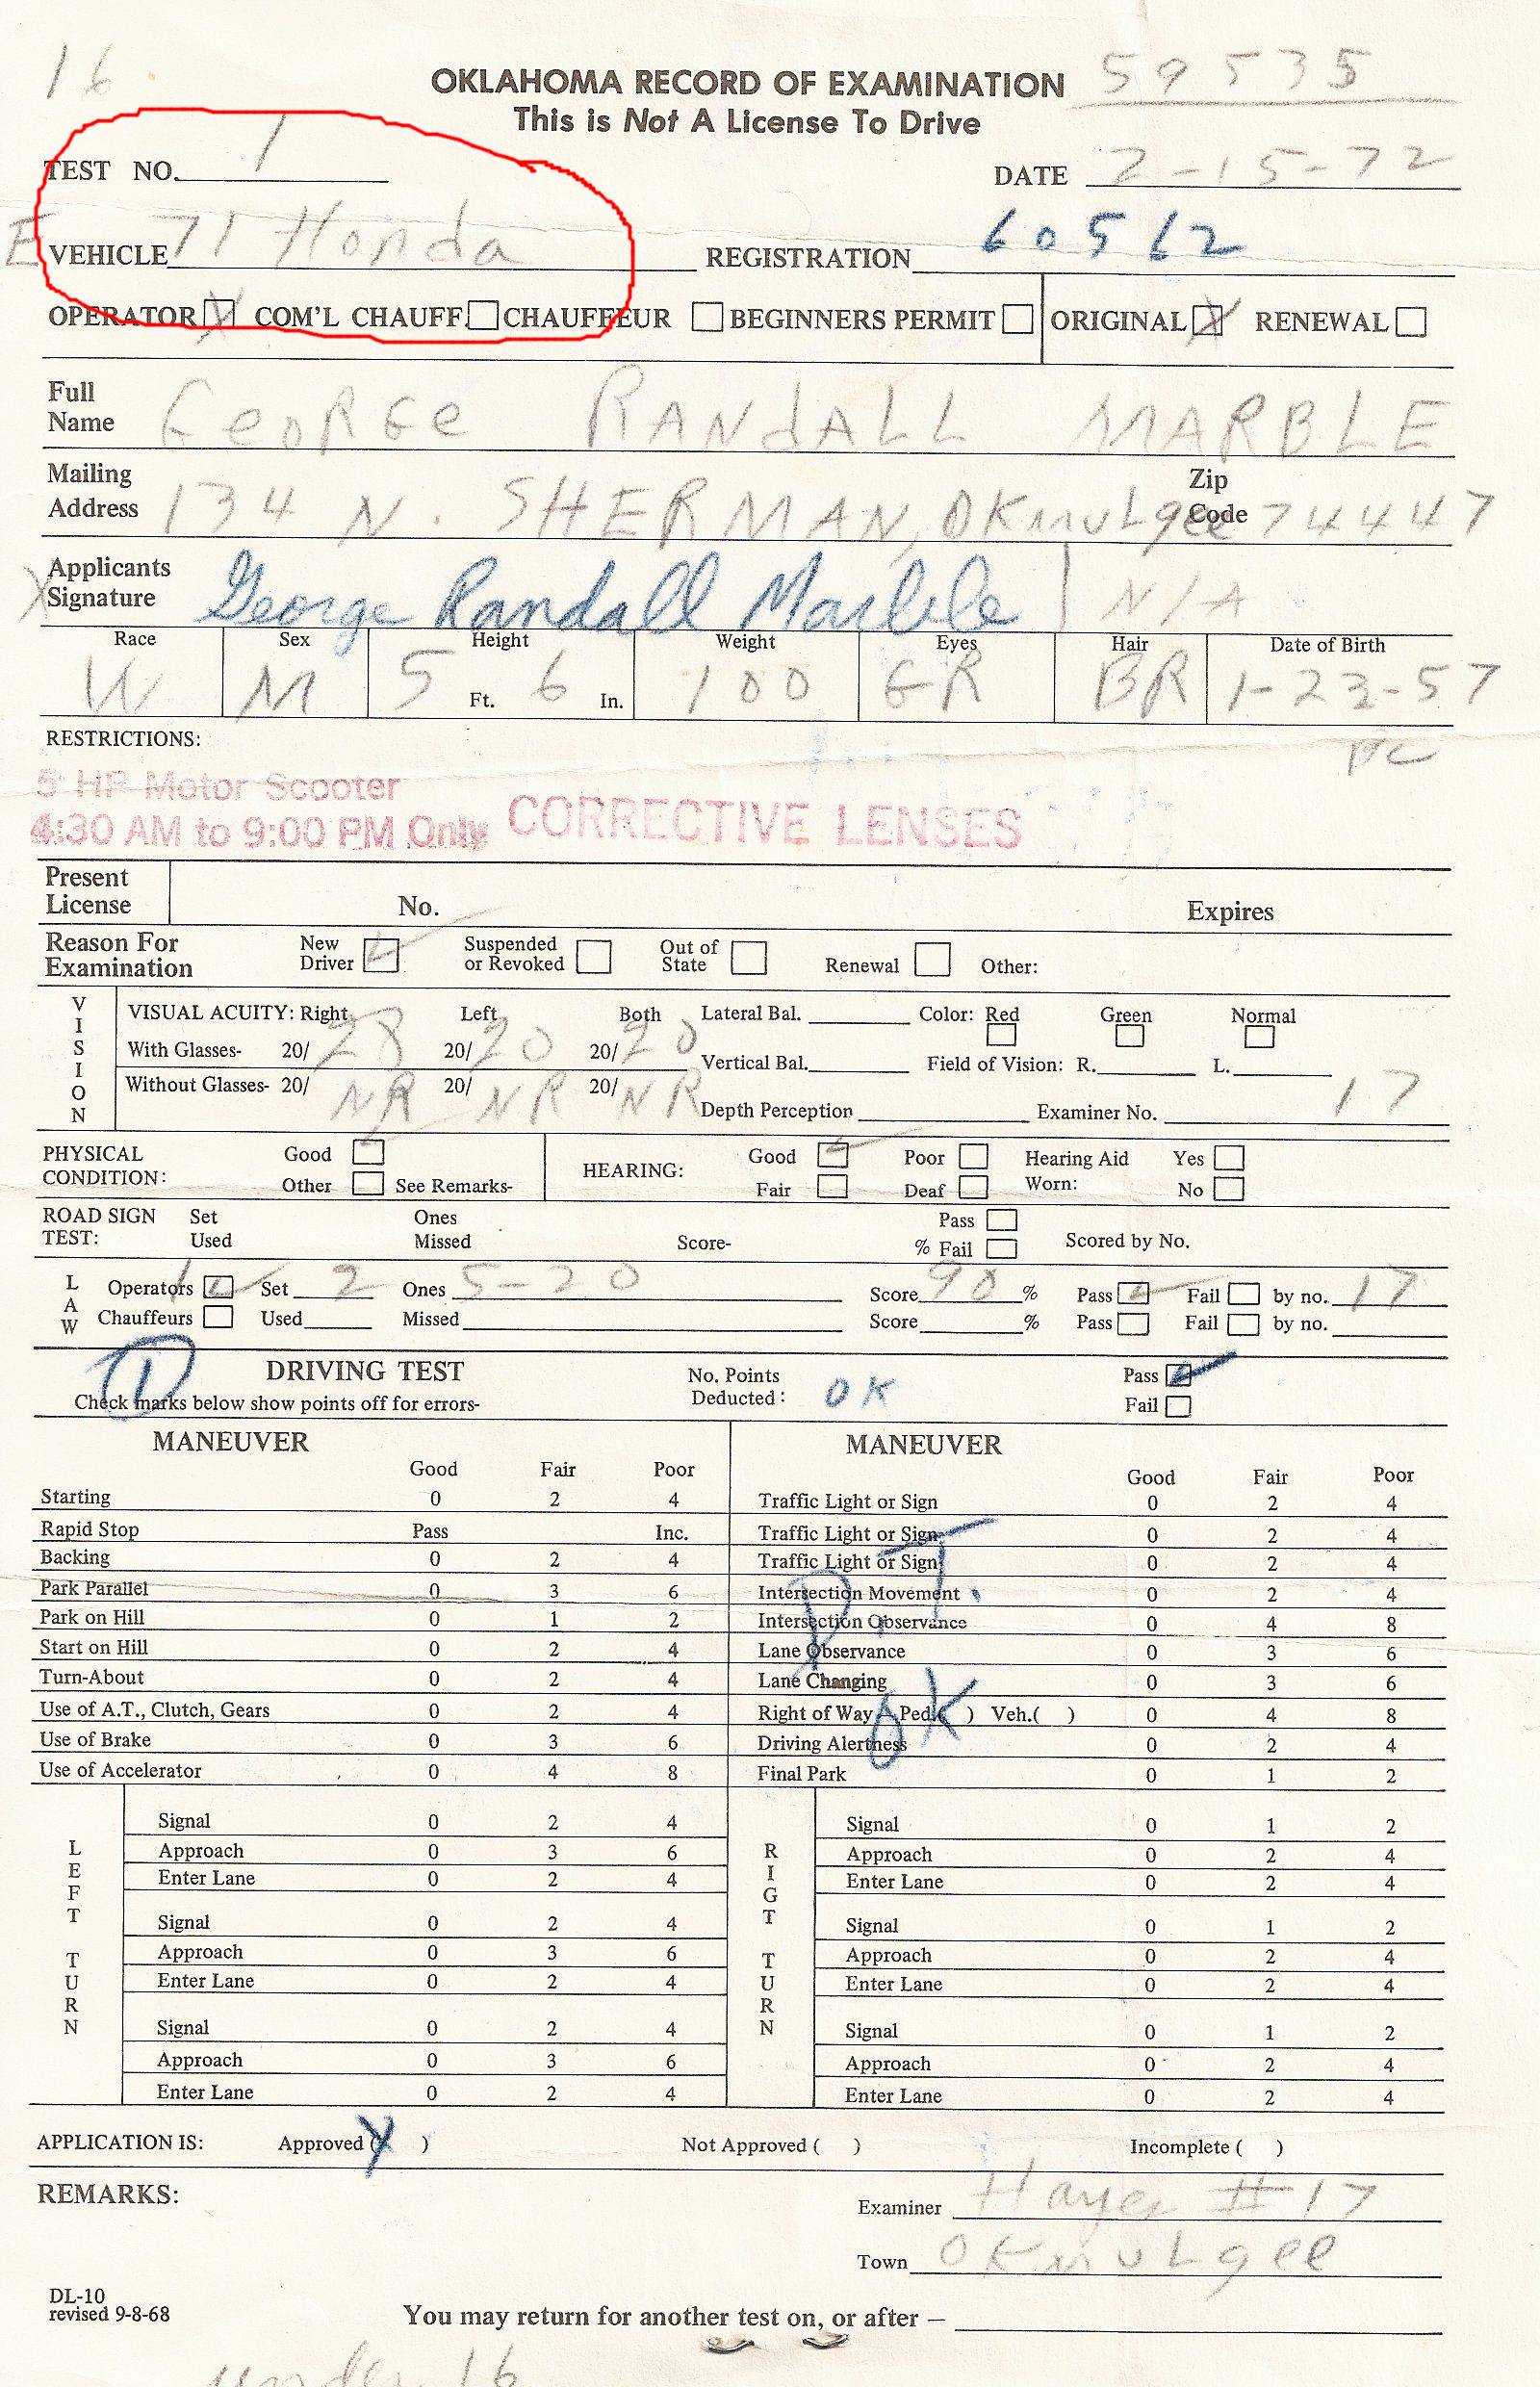 16
OKLAHOMA RECORD OF EXAMINATION 59535
This is Not A License To Drive
TEST NO. 1 DATE 2-15-72
E VEHICLE 71 Honda REGISTRATION 60562
OPERATOR X COM'L CHAUFF. CHAUFFEUR BEGINNERS PERMIT ORIGINAL X RENEWAL
Full Name GeoRGe RANdALL MARBLE
Mailing Address 134 N. SHERMAN, OKmuLgee Zip Code 74447
X Applicants Signature George Randall Marble N/A
Race Sex Height Weight Eyes Hair Date of Birth
W M 5 Ft. 6 In. 100 GR BR 1-23-57
RESTRICTIONS: BC
5 HP Motor Scooter
4:30 AM to 9:00 PM Only CORRECTIVE LENSES
Present License No. Expires
Reason For Examination New Driver Suspended or Revoked Out of State Renewal Other:
VISION
VISUAL ACUITY: Right Left Both Lateral Bal. Color: Red Green Normal
With Glasses- 20/28 20/20 20/20 Vertical Bal. Field of Vision: R. L.
Without Glasses- 20/NR 20/NR 20/NR Depth Perception Examiner No. 17
PHYSICAL CONDITION: Good HEARING: Good Poor Hearing Aid Worn: Yes
Other See Remarks- Fair Deaf No
ROAD SIGN TEST: Set Used Ones Missed Score- % Pass Fail Scored by No.
LAW
Operators Set 2 Ones 5-20 Score 90 % Pass Fail by no. 17
Chauffeurs Used Missed Score % Pass Fail by no.
1 DRIVING TEST No. Points Deducted: OK Pass
Check marks below show points off for errors- Fail
MANEUVER MANEUVER
Good Fair Poor Good Fair Poor
Starting 0 2 4 Traffic Light or Sign 0 2 4
Rapid Stop Pass Inc. Traffic Light or Sign 0 2 4
Backing 0 2 4 Traffic Light or Sign 0 2 4
Park Parallel 0 3 6 Intersection Movement 0 2 4
Park on Hill 0 1 2 Intersection Observance 0 4 8
Start on Hill 0 2 4 Lane Observance 0 3 6
Turn-About 0 2 4 Lane Changing 0 3 6
Use of A.T., Clutch, Gears 0 2 4 Right of Way - Ped.( ) Veh.( ) 0 4 8
Use of Brake 0 3 6 Driving Alertness 0 2 4
Use of Accelerator 0 4 8 Final Park 0 1 2
P.T.
OK
LEFT TURN RIGT TURN
Signal 0 2 4 Signal 0 1 2
Approach 0 3 6 Approach 0 2 4
Enter Lane 0 2 4 Enter Lane 0 2 4
Signal 0 2 4 Signal 0 1 2
Approach 0 3 6 Approach 0 2 4
Enter Lane 0 2 4 Enter Lane 0 2 4
Signal 0 2 4 Signal 0 1 2
Approach 0 3 6 Approach 0 2 4
Enter Lane 0 2 4 Enter Lane 0 2 4
APPLICATION IS: Approved (X) Not Approved ( ) Incomplete ( )
REMARKS:
Examiner Hayes #17
Town OKmuLgee
DL-10
revised 9-8-68 You may return for another test on, or after —
under 16